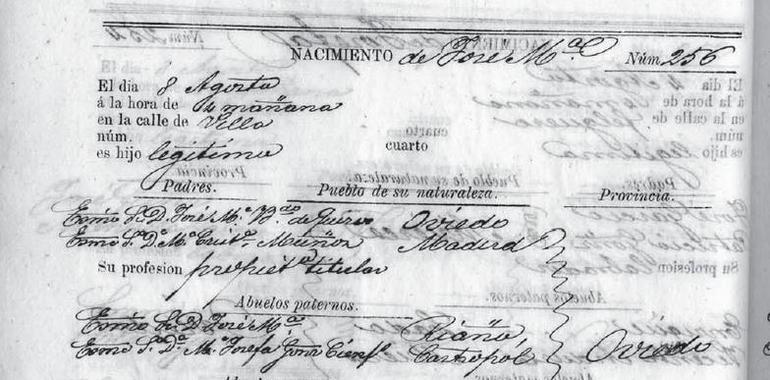 NACIMIENTO de José M.ª Núm. 256
El dia 8 Agosto
á la hora de 4 mañana
en la calle de Villa
núm. cuarto
es hijo legítimo
Padres. Pueblo de su naturaleza. Provincia.
Exmo Sr. D. José M.ª B.do de Quiros Oviedo
Exma Sr.ª D.ª M.ª Crist.na Muñoz Madrid
Su profesion propiet.º titular
Abuelos paternos.
Exmo Sr. D. José M.ª Riaño,
Exma Sr.ª D.ª M.ª Josefa Gonz Cienf.s Castropol Oviedo